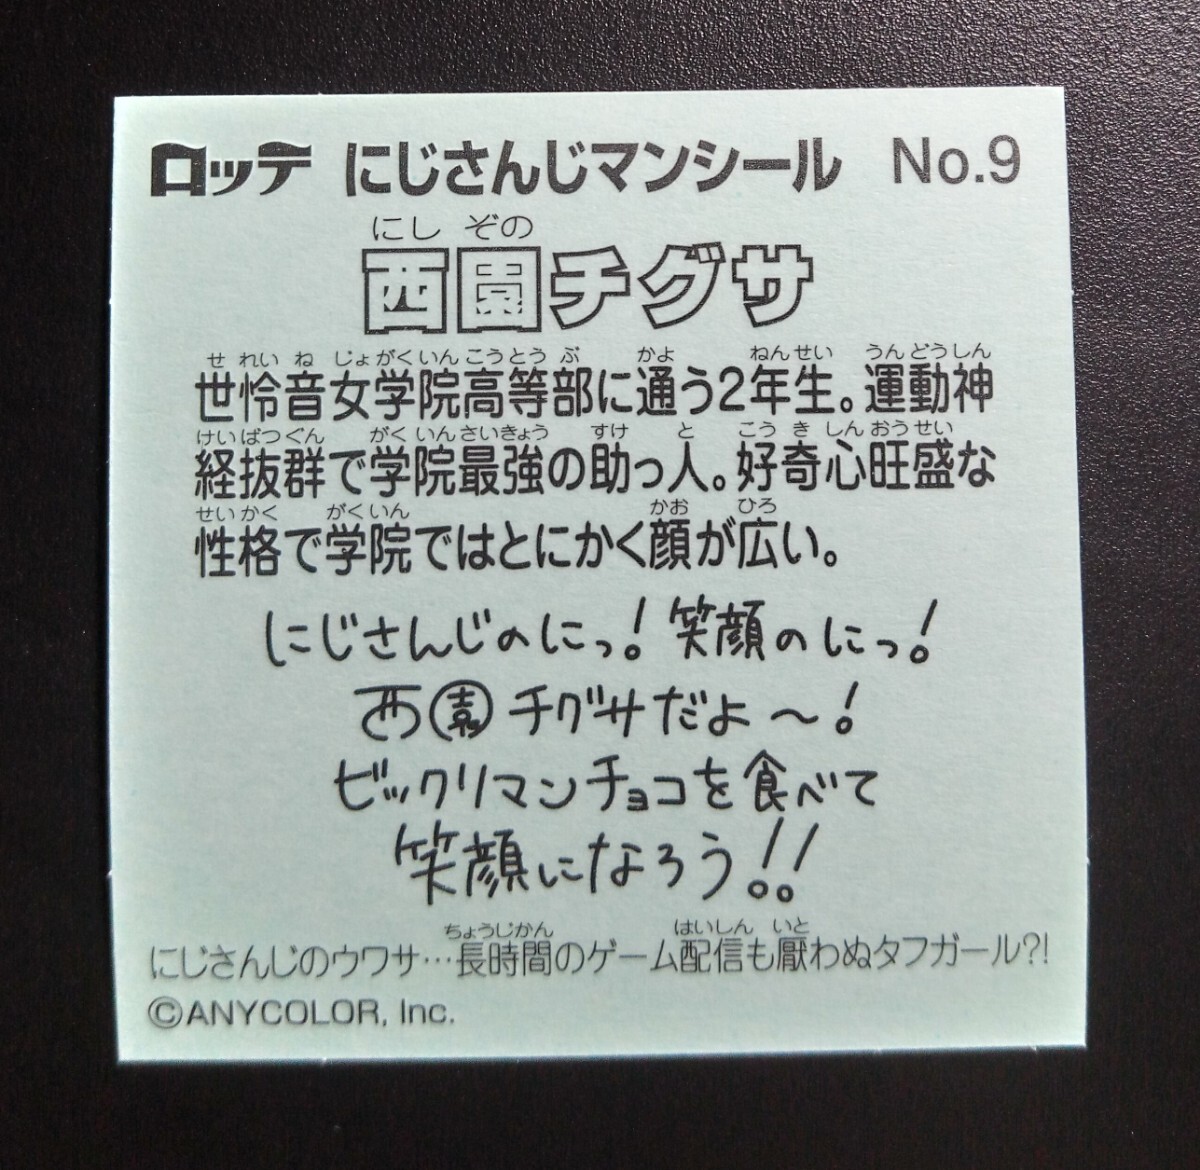 ロッテ にじさんじマンシール No.9
にし ぞの
西園チグサ
せ れい ね じょがくいんこうとう ぶ かよ ねんせい うんどうしん
世怜音女学院高等部に通う2年生。運動神
けいばつぐん がくいんさいきょう すけ と こう き しんおうせい
経抜群で学院最強の助っ人。好奇心旺盛な
せいかく がくいん かお ひろ
性格で学院ではとにかく顔が広い。
にじさんじのにっ!笑顔のにっ!
西園チグサだよ〜!
ビックリマンチョコを食べて
笑顔になろう!!
ちょうじかん はいしん いと
にじさんじのウワサ…長時間のゲーム配信も厭わぬタフガール?!
©ANYCOLOR, Inc.